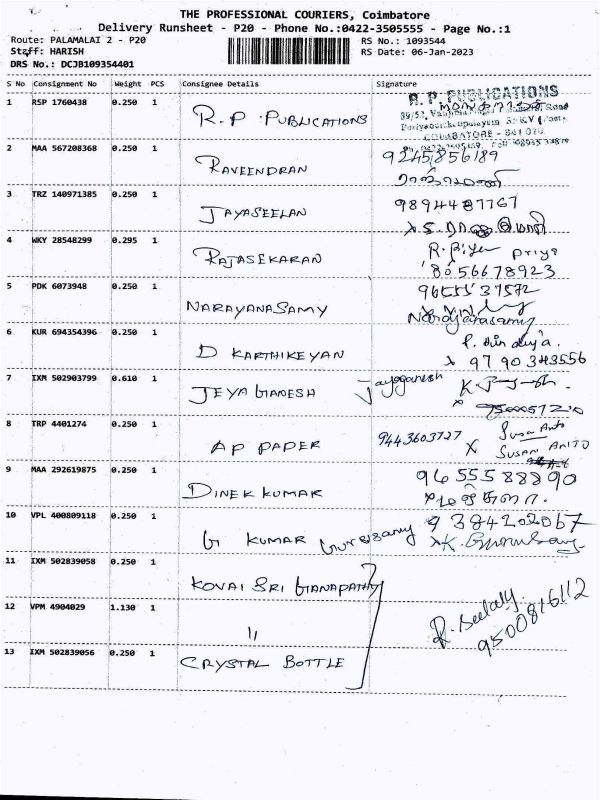 THE PROFESSIONAL COURIERS, Coimbatore
Delivery Runsheet - P20 - Phone No.:0422-3505555 - Page No.:1
Route: PALAMALAI 2 - P20
Staff: HARISH
DRS No.: DCJB109354401
RS No.: 1093544
RS Date: 06-Jan-2023
S No Consignment No Weight PCS Consignee Details Signature
1 RSP 1760438 0.250 1 R.P. PUBLICATIONS
R. P. PUBLICATIONS
COIMBATORE - 641 020
2 MAA 567208368 0.250 1 RAVEENDRAN 9245856189
3 TRZ 140971385 0.250 1 JAYASEELAN 9894487767
4 WKY 28548299 0.295 1 RAJASEKARAN Priya
8056678923
5 PDK 6073948 0.250 1 NARAYANASAMY 9655537572
Narayanasamy
6 KUR 694354396 0.250 1 D KARTHIKEYAN
x 9790343556
7 IXM 502903799 0.610 1 JEYA GANESH Jayaganesh
8 TRP 4401274 0.250 1 AP PAPER 9443603727 x Susan Anto
SUSAN ANTO
9 MAA 292619875 0.250 1 DINEK KUMAR 9655588890
10 VPL 400809118 0.250 1 G KUMAR Gurusamy 9384202067
11 IXM 502839058 0.250 1 KOVAI SRI GANAPATHY
12 VPM 4904029 1.130 1 11
9500816112
13 IXM 502839056 0.250 1 CRYSTAL BOTTLE